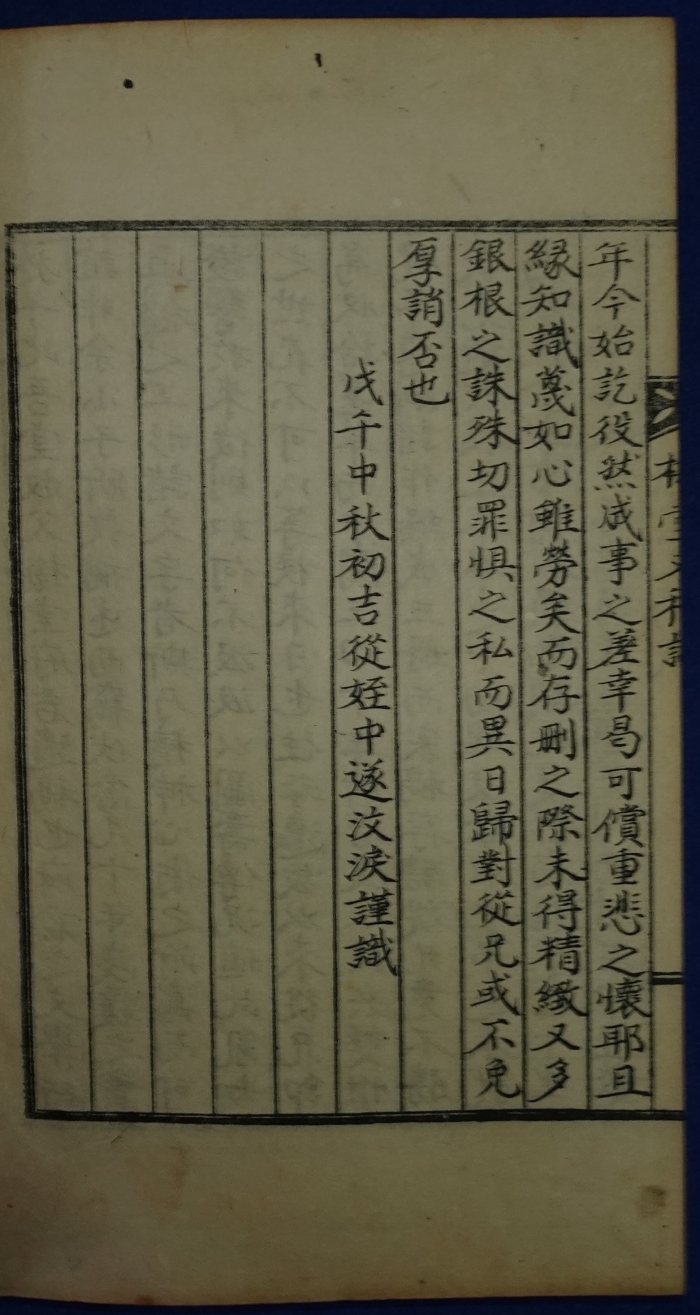 年今始訖役然成事之差幸曷可償重悲之懷耶且
緣知識蔑如心雖勞矣而存刪之際未得精緻又多
銀根之誅殊切罪惧之私而異日歸對從兄或不免
厚誚否也
戊午中秋初吉從姪中遂汶淚謹識